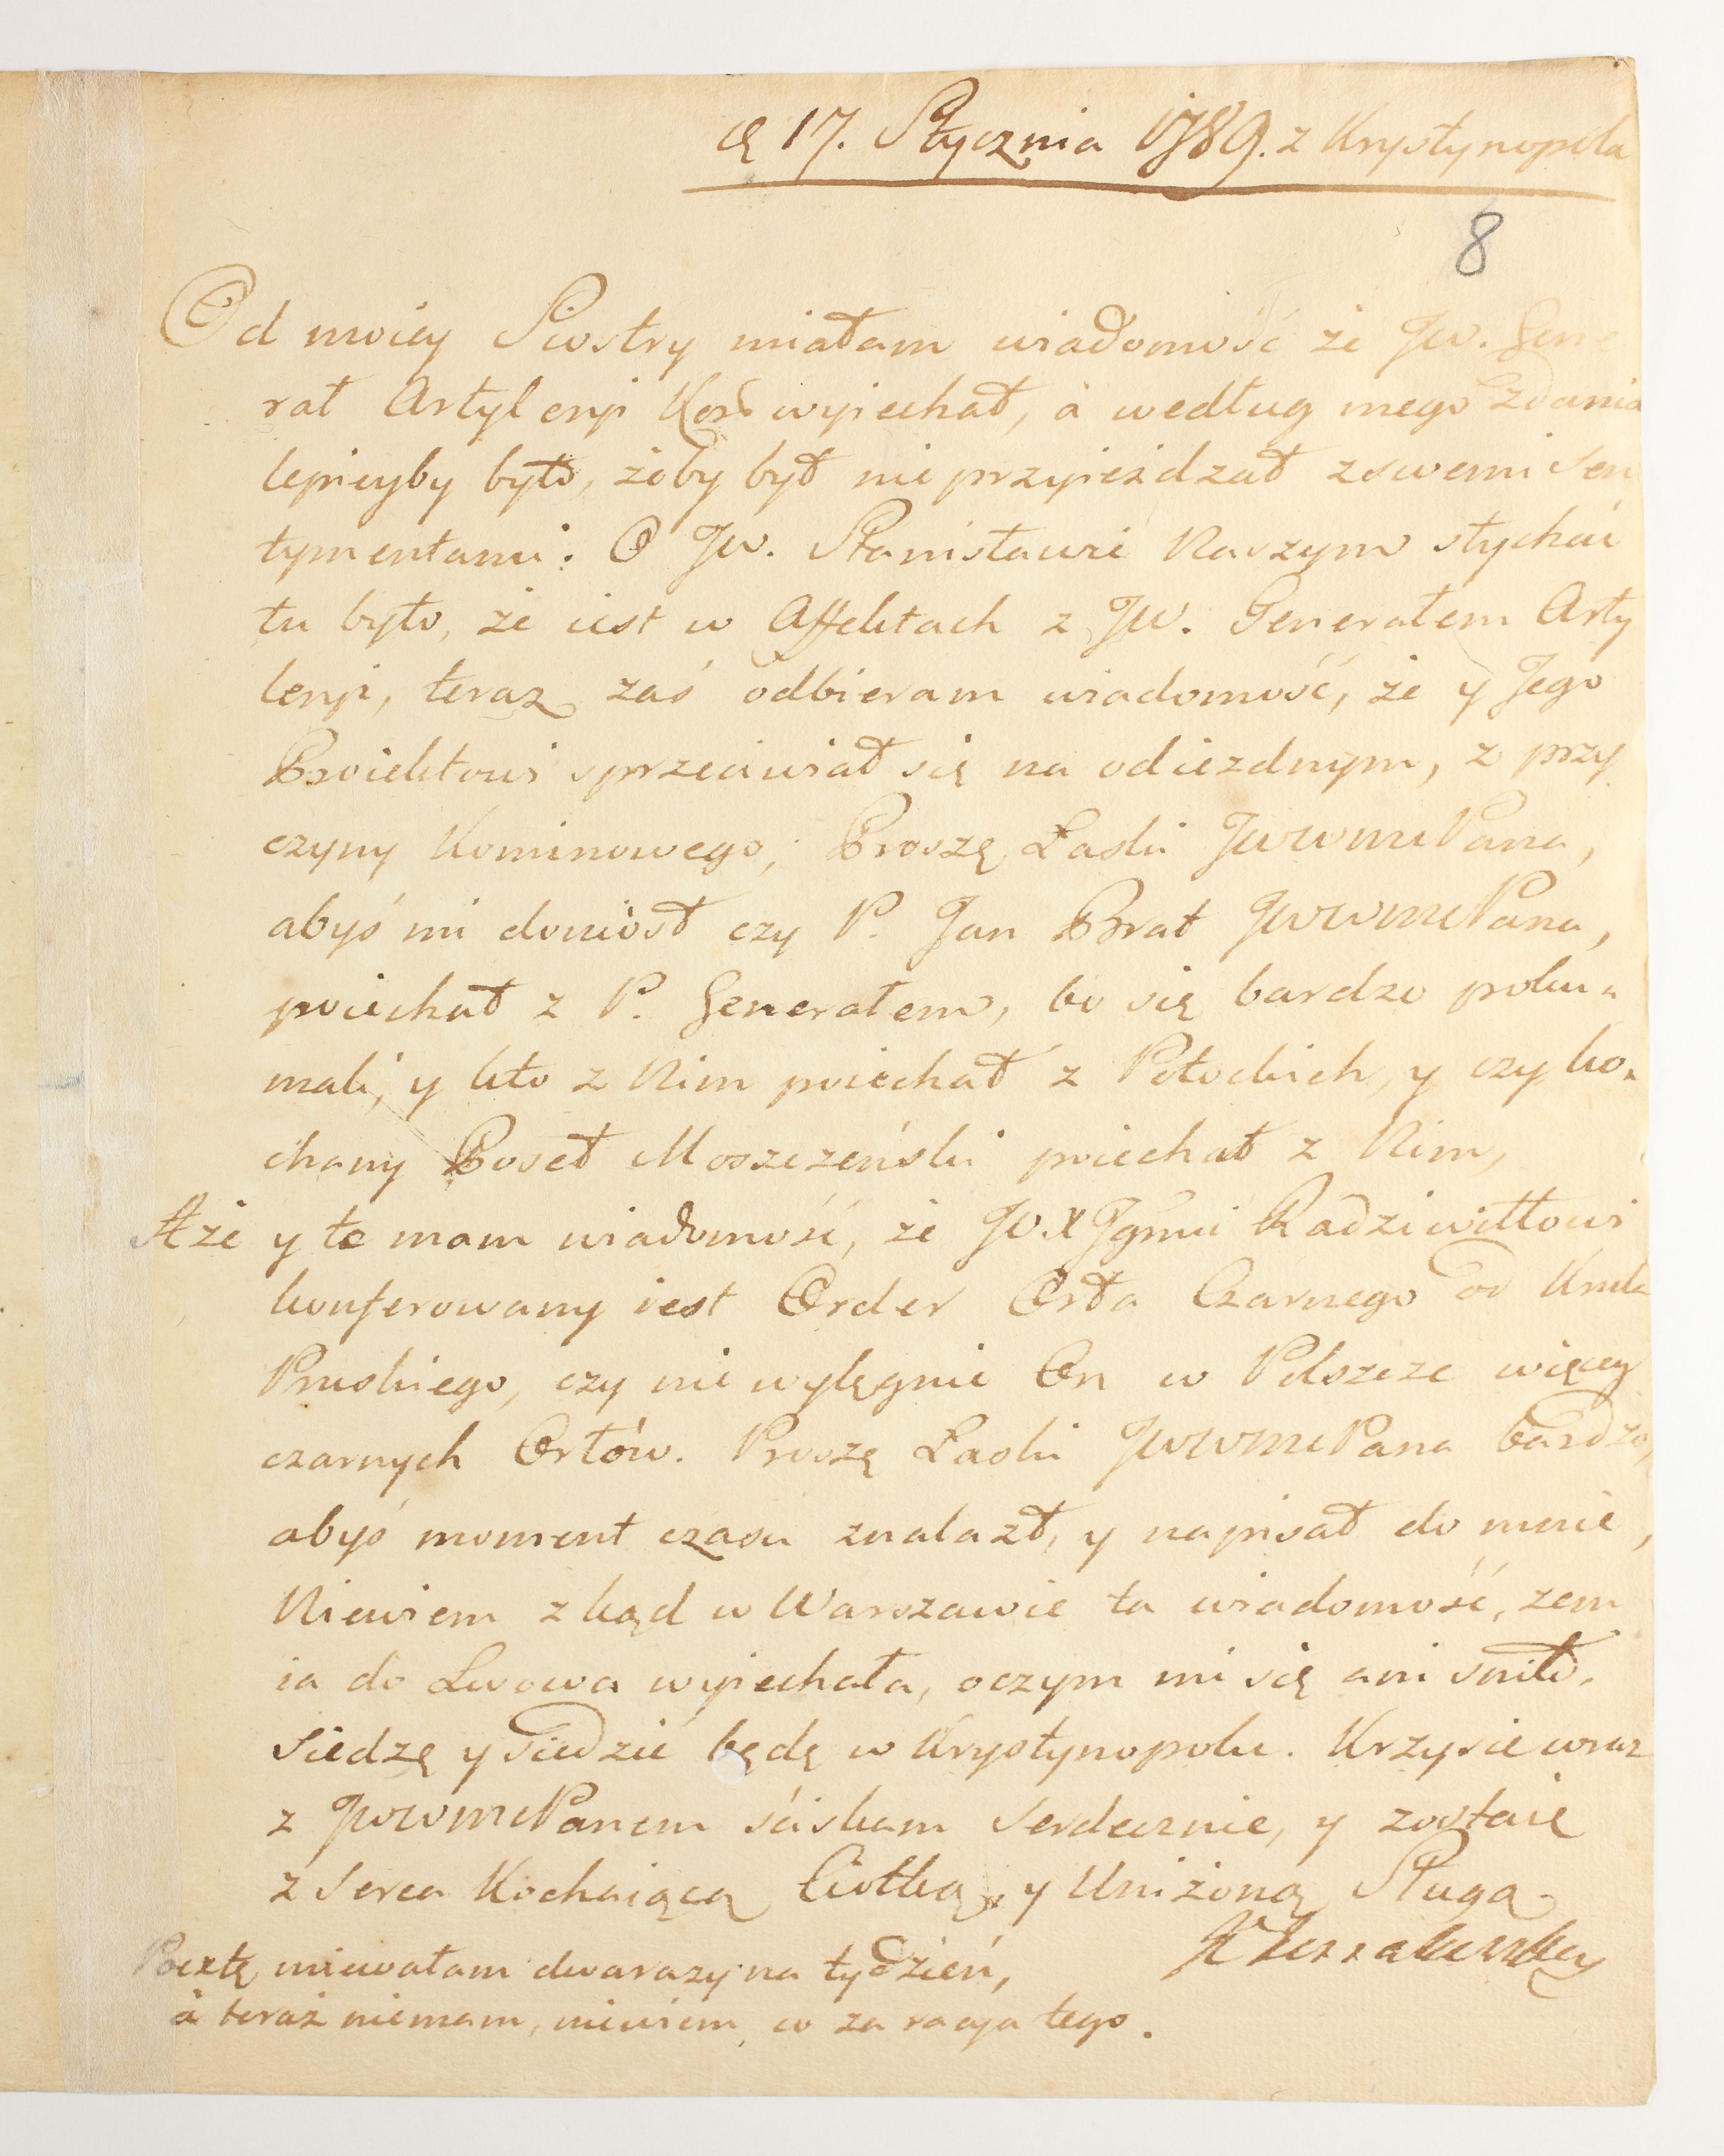 d 17. Stycznia 1789. z Krystynopola
8
Od moiey Siostry miałam wiadomość że Jw. Gene
rał Artyleryi Kor: wyiechał, à według mego zdania
lepieyby było, żeby był nie przyieżdzał z swemi Sen
tymentami: O Jw. Stanisławie Naszym słychać
tu było, że iest w Affektach z JW. Generałem Arty
leryi, teraz zaś odbieram wiadomość, że y Jego
Proiektowi sprzeciwiał się na odiezdnym, z przy
czyny Kominowego; Proszę Łaski JWWMCPana,
abyś mi doniósł czy P. Jan Brat JWWMCPana,
poiechał z P. Generałem, bo się bardzo poku=
mali, y kto z Nim poiechał z Potockich, y czy ko=
chany Poseł Moszczeński poiechał z Nim,
A że y te mam wiadomość, że JO. X Jgmci Radziwiłłowi
konferowany iest Order Orła Czarnego od Krula
Pruskiego, czy nie wylęgnie On w Polszcze więcey
czarnych Orłów. Proszę Łaski JWWMCPana bardzo,
abyś moment czasu znalazł, y napisał do mnie,
Niewiem zkąd w Warszawie ta wiadomość, żem
ia do Lwowa wyiechała, oczym mi się ani sniło.
Siedzę y siedzić będę w Krystynopolu. Krzysie wraz
z JWWMCPanem ściskam serdecznie, y zostaię
z serca Kochaiącą Ciotką, y Uniżoną Sługą
Pocztę miewałam dwarazy na tydzień,
à teraz niemam, niewiem, co za racya tego.